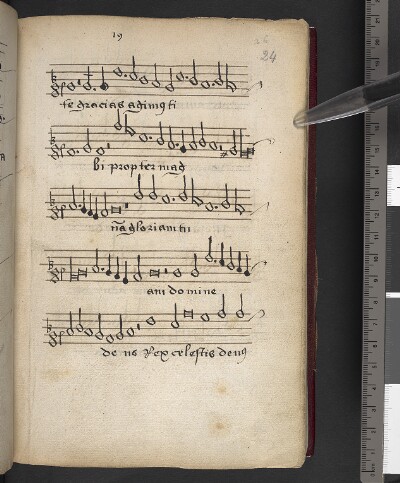 19
24
te gracias agimus ti
bi propter mag
nã gloriam tu
am domine
de us Rex celestis deus